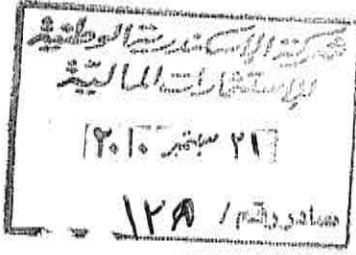 شركة الإسكندرية الوطنية
للإستثمارات المالية
٢١ سبتمبر ٢٠١٠
صادر رقم /